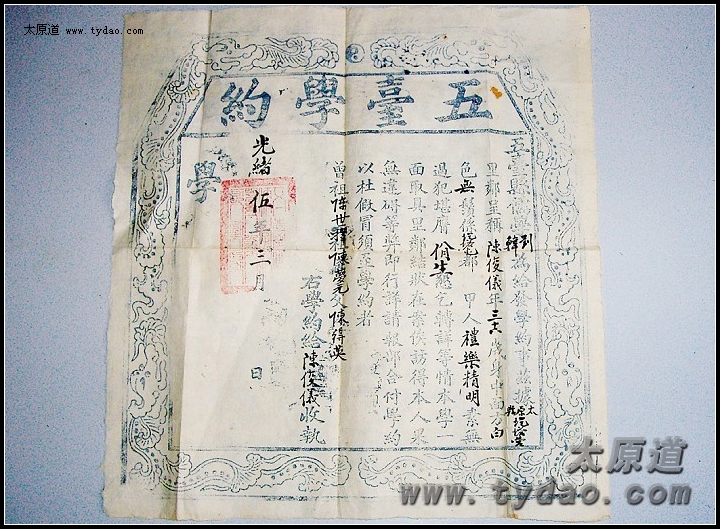 太原道 www.tydao.com
五臺學約
五臺縣儒學劉韓為給發學約事茲據太原
里鄰呈稱陳俊儀年三十六歲身中面方面
色無鬚係都甲人禮樂精明素無
過犯堪膺佾生懇乞轉詳等情本學一
面取具里鄰結狀在案俟訪得本人果
無違碍等獘即行詳請報部合付學約
以杜假冒須至學約者
曾祖陳世祖陳夢元父陳得漢
右學約給陳俊儀收執
光緒伍年三月日
學
太原道
www.tydao.com